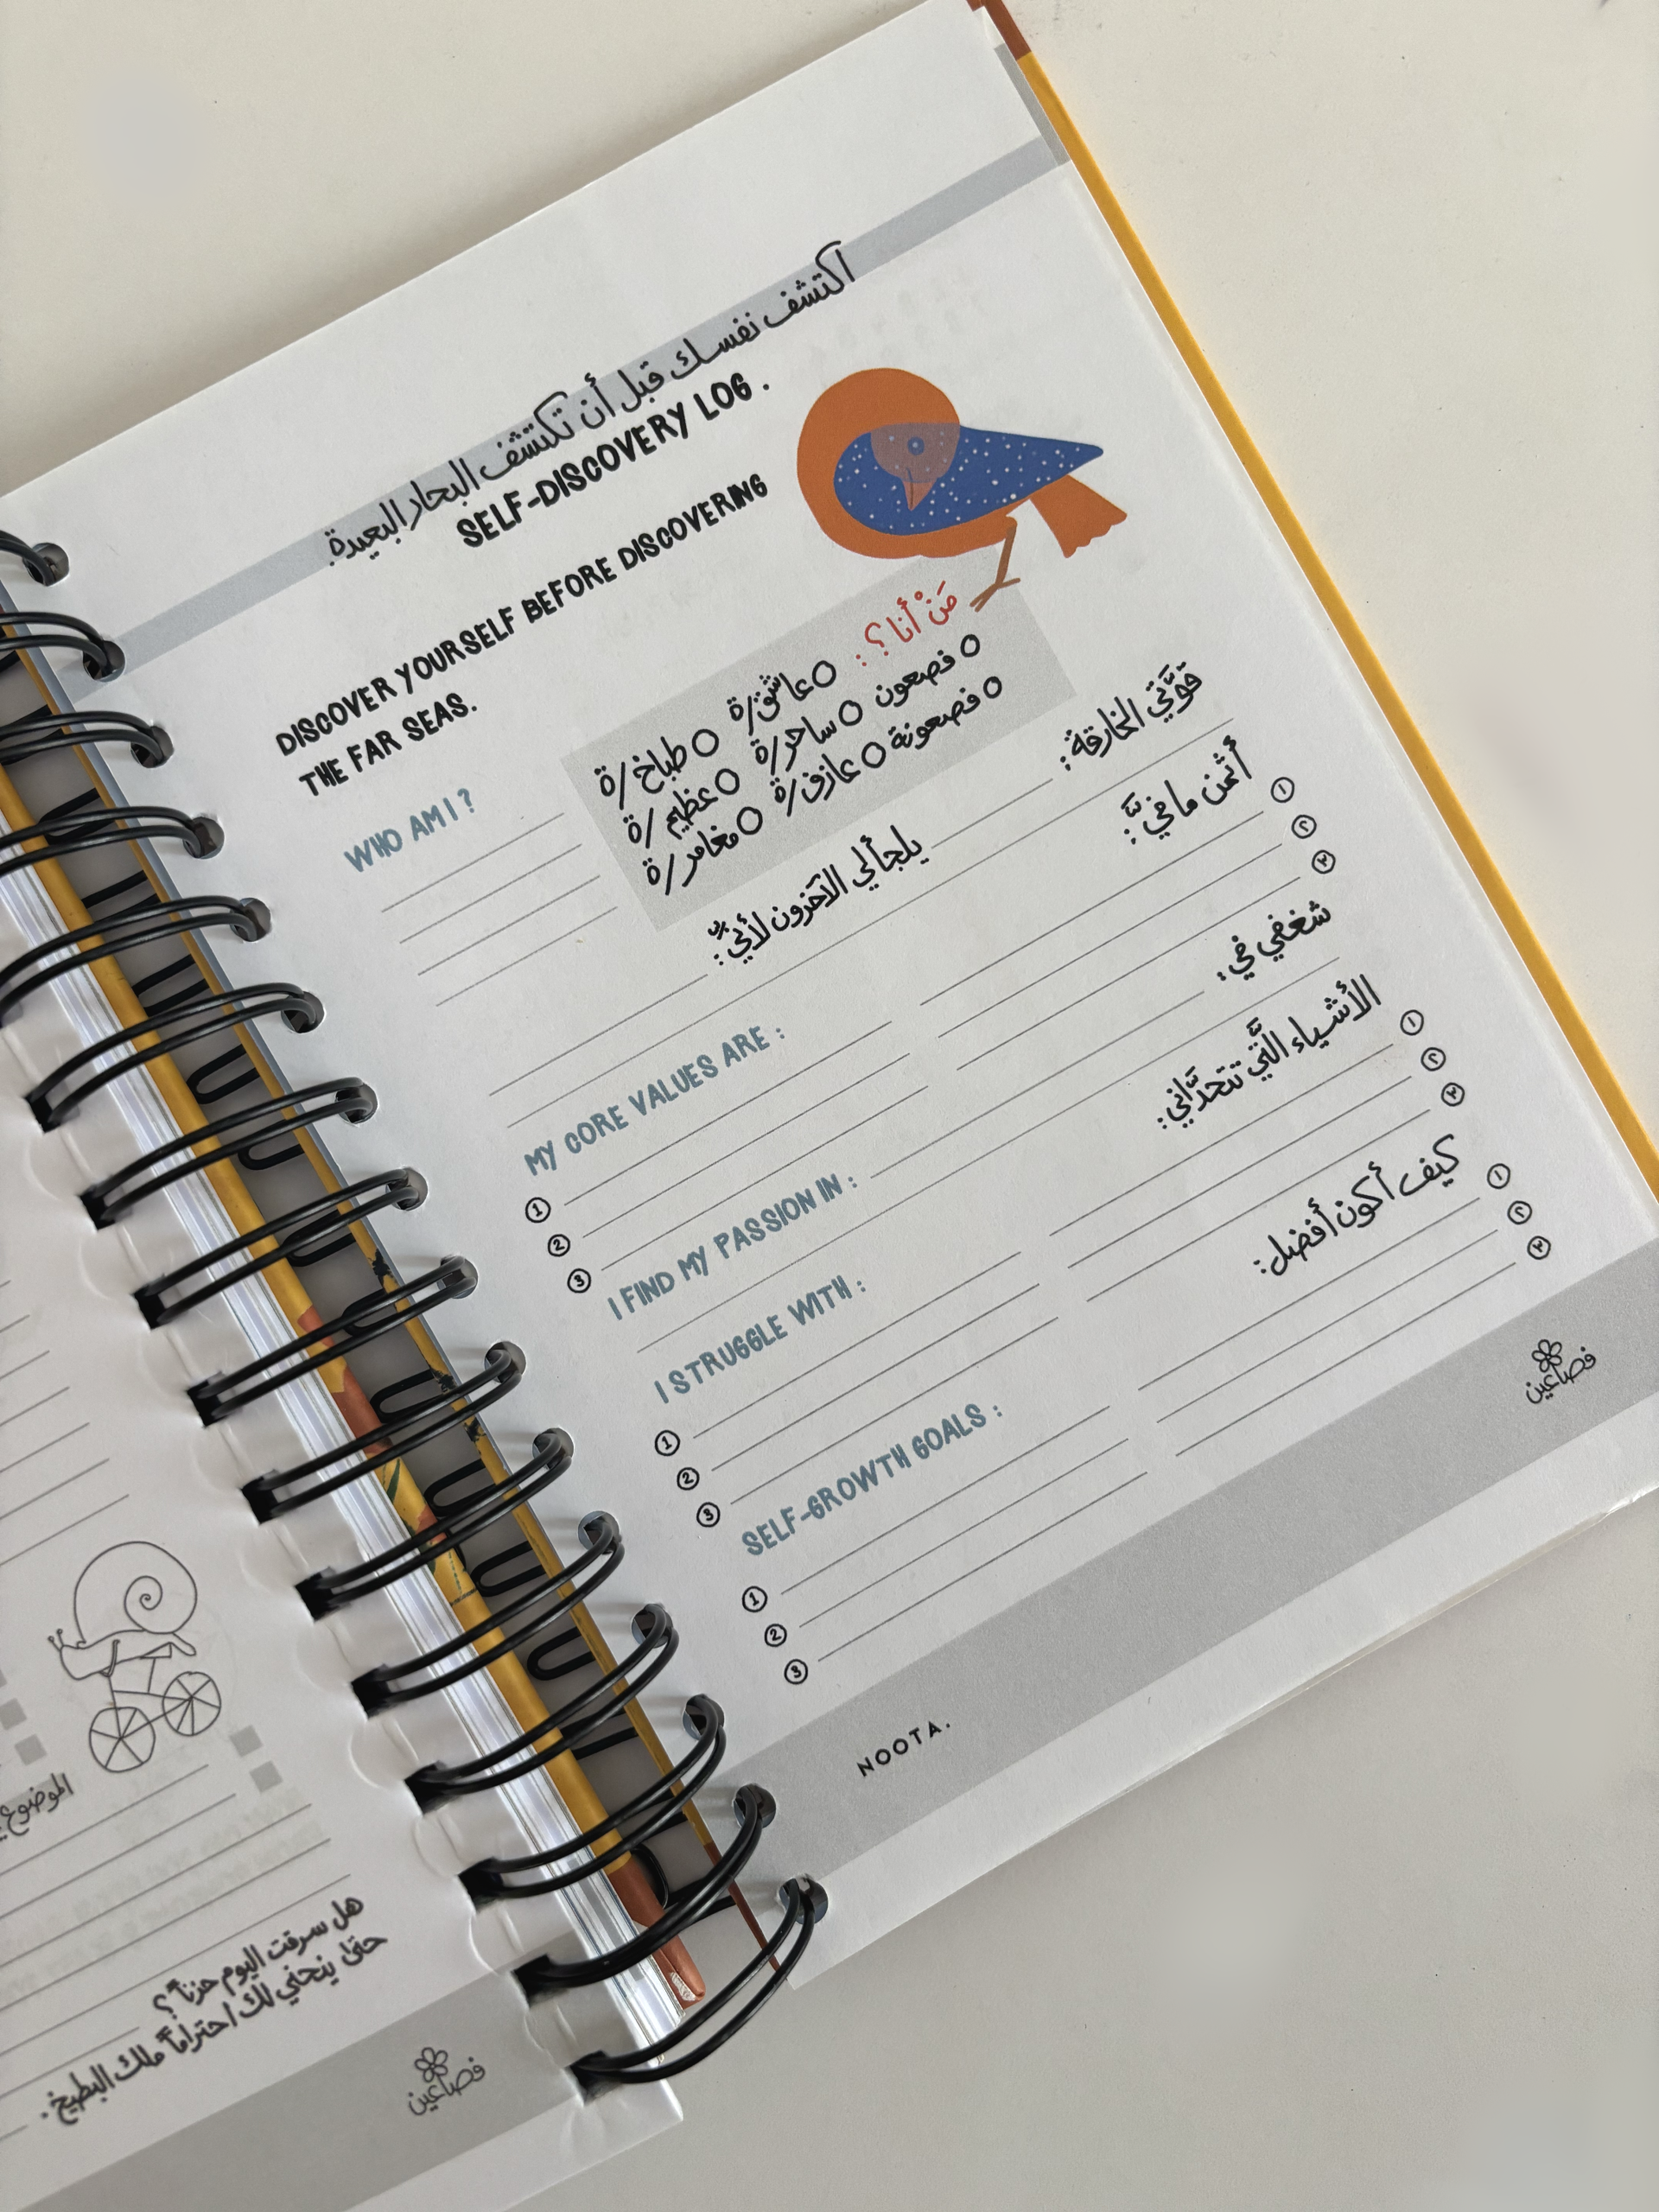 اكتشف نفسك قبل أن تكتشف البحار البعيدة.
SELF-DISCOVERY LOG.
DISCOVER YOURSELF BEFORE DISCOVERING
THE FAR SEAS.
مَنْ أنا؟:
فصعون
فصعونة
عاشق/ة
ساحر/ة
عازف/ة
طباخ/ة
عظيم/ة
مغامر/ة
WHO AM I?
قوَّتي الخارقة:
يلجأ لي الآخرون لأنّي:
أثمن ما فيَّ:
١
٢
٣
MY CORE VALUES ARE:
1
2
3
شغفي في:
I FIND MY PASSION IN:
الأشياء الَّتي تتحدَّاني:
١
٢
٣
I STRUGGLE WITH:
1
2
3
كيف أكون أفضل:
١
٢
٣
SELF-GROWTH GOALS:
1
2
3
NOOTA.
فصاعين
الموضوع
هل سرقت اليوم حزناً؟
حتى ينحني لك احتراماً ملك البطيخ.
فصاعين